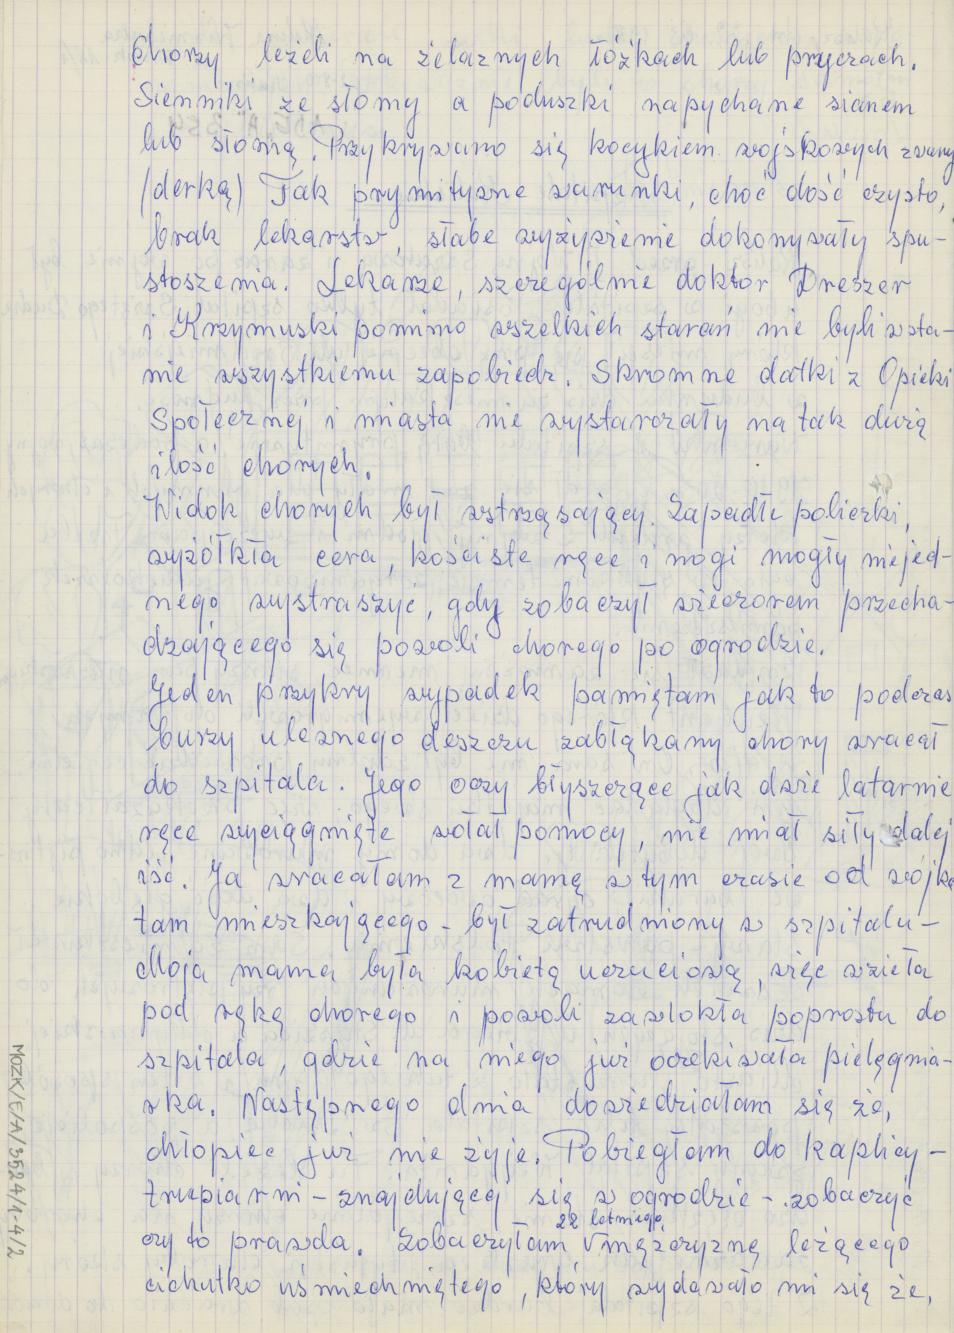 Chorzy leżeli na żelaznych łóżkach lub pryczach.
Sienniki ze słomy a poduszki napychane sianem
lub słomą. Przykrywano się kocykiem wojskowych zwany
(derką) Tak prymitywne warunki, choć dość czysto,
brak lekarstw, słabe wyżywienie dokonywały spu-
stoszenia. Lekarze, szczególnie doktor Dreszer
i Krzymuski pomimo wszelkich starań nie byli wsta-
nie wszystkiemu zapobiedz. Skromne datki z Opieki
Społecznej i miasta nie wystarczały na tak dużą
ilość chorych.
Widok chorych był wstrząsający. Zapadłe policzki,
wyżółkła cera, kościste ręce i nogi mogły niejed-
nego wystraszyć, gdy zobaczył wieczorem przecha-
dzającego się powoli chorego po ogrodzie.
Jeden przykry wypadek pamiętam jak to podczas
burzy ulewnego deszczu zabłąkany chory wracał
do szpitala. Jego oczy błyszczące jak dwie latarnie
ręce wyciągnięte wołał pomocy, nie miał siły dalej
iść. Ja wracałam z mamą w tym czasie od wójka
tam mieszkającego - był zatrudniony w szpitalu -
Moja mama była kobietą uczuciową, więc wzieła
pod rękę chorego i powoli zawlokła poprostu do
szpitala, gdzie na niego już oczekiwała pielęgnia-
rka. Następnego dnia dowiedziałam się że,
chłopiec już nie żyje. Pobiegłam do kaplicy -
trupiarni - znajdującej się w ogrodzie - zobaczyć
22 letniego
czy to prawda. Zobaczyłam V mężczyznę leżącego
cichutko uśmiechniętego, który wydawało mi się że,
MOZK/E/A/3524/1-4/2